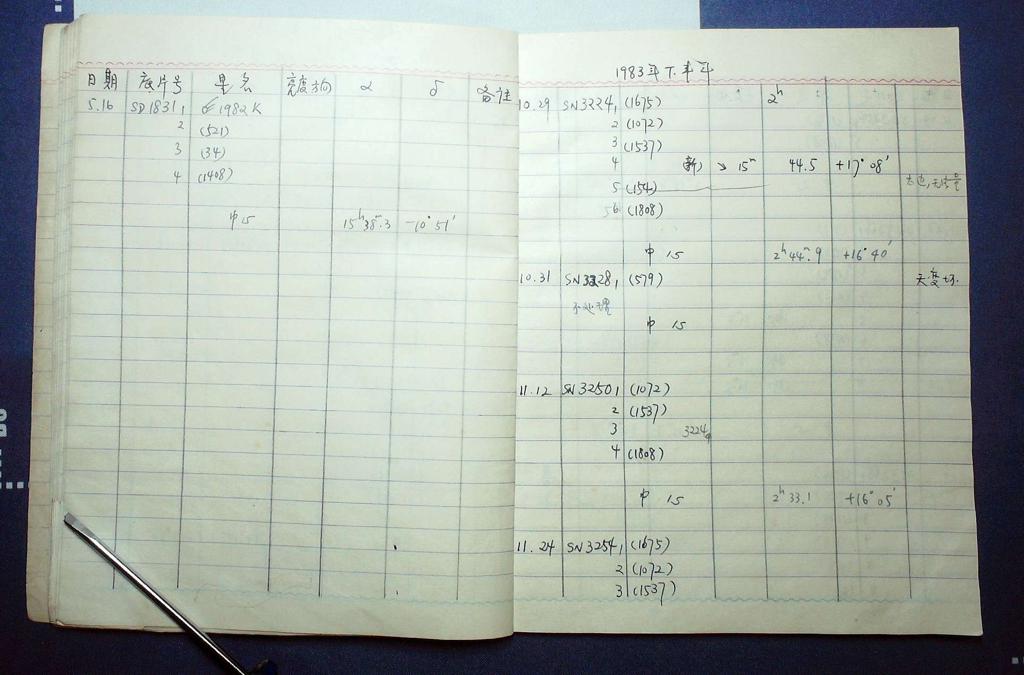 日期 底片号 星名 亮度 α δ 备注
5.16 SD1831,1 1982K
2 (521)
3 (34)
4 (1408)
中 15 15ʰ38ᵐ.3 -10°51′
1983年下半年
2ʰ
10.29 SN3224,1 (1675)
2 (1072)
3 (1537)
4 新 15ᵐ 44.5 +17°08′
5 (154)
6 (1808)
中 15 2ʰ44ᵐ.9 +16°40′
10.31 SN3228,1 (579)
不处理
中 15
11.12 SN3250,1 (1072)
2 (1537)
3 3224
4 (1808)
中 15 2ʰ33.1 +16°05′
11.24 SN3254,1 (1675)
2 (1072)
3 (1537)